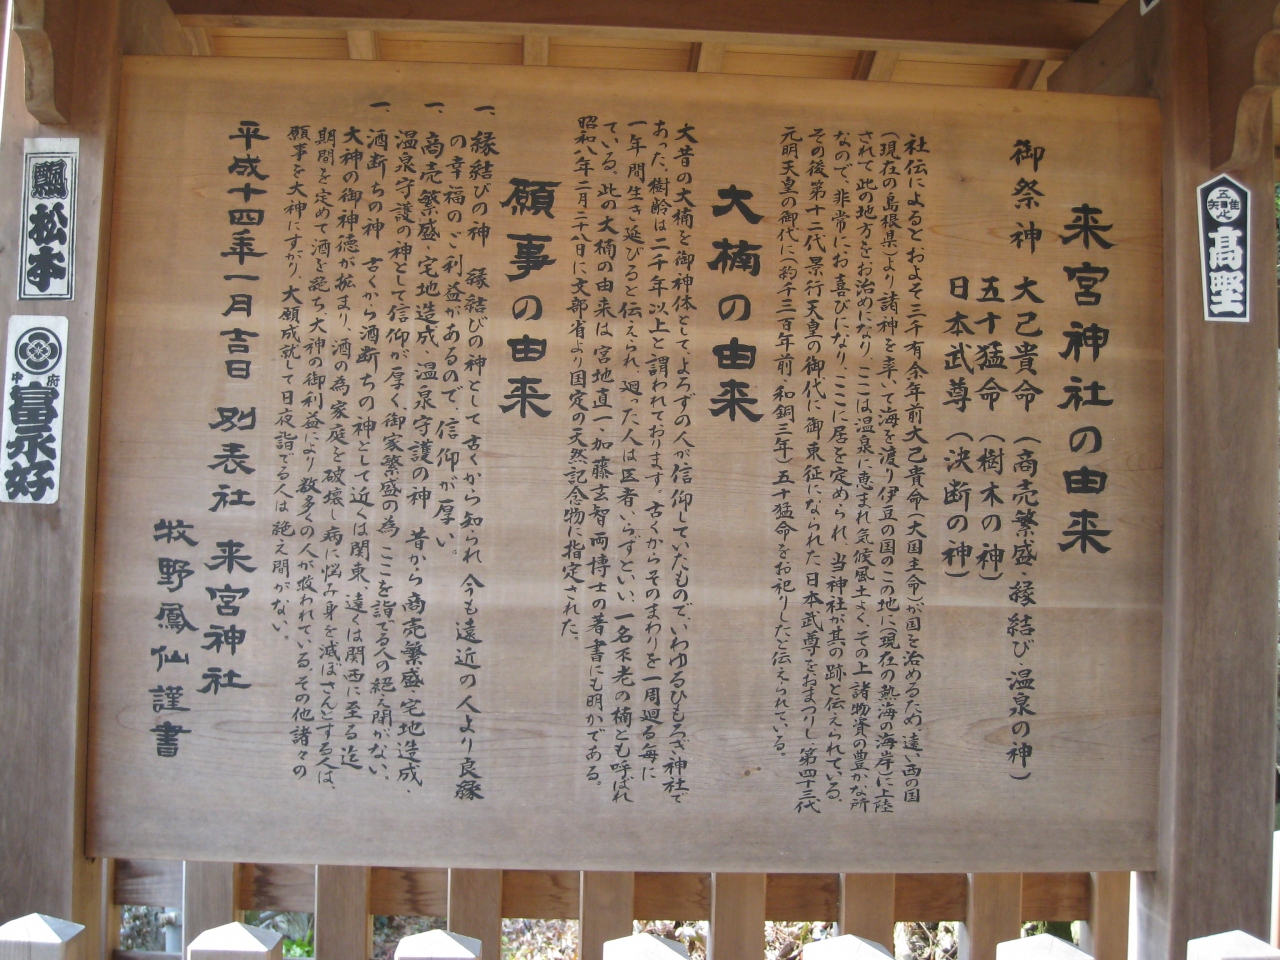 来宮神社の由来
御祭神 大己貴命(商売繁盛・縁結び・温泉の神)
五十猛命(樹木の神)
日本武尊(決断の神)
社伝によるとおよそ三千有余年前大己貴命(大国主命)が国を治めるため、遠い西の国
(現在の島根県)より諸神を率いて海を渡り伊豆の国のこの地に(現在の熱海の海岸)に上陸
されて此の地方をお治めになり、ここは温泉に恵まれ気候風土よく、その上諸物資の豊かな所
なので、非常にお喜びになり、ここに居を定められ、当神社が其の跡と伝えられている。
その後第十二代景行天皇の御代に御東征になられた日本武尊をおまつりし、第四十三代
元明天皇の御代に(約千三百年前・和銅三年)五十猛命をお祀りしたと伝えられている。
大楠の由来
大昔の大楠を御神体として、よろずの人が信仰していたもので、いわゆるひもろぎ神社で
あった。樹齢は二千年以上と謂われております。古くからそのまわりを一周廻る毎に
一年間生き延びると伝えられ、廻った人は医者いらずといい、一名不老の楠とも呼ばれ
ている。此の大楠の由来は、宮地直一、加藤玄智両博士の著書にも明かである。
昭和八年二月二十八日に文部省より国定の天然記念物に指定された。
願事の由来
一、縁結びの神 縁結びの神として古くから知られ 今も遠近の人より良縁
の幸福のご利益があるので、信仰が厚い。
一、商売繁盛・宅地造成・温泉守護の神 昔から商売繁盛・宅地造成・
温泉守護の神として信仰が厚く御家繁盛の為 ここを詣でる人の絶え間がない、
一、酒断ちの神 古くから酒断ちの神として近くは関東、遠くは関西に至る迄
大神の御神徳が拡まり、酒の為家庭を破壊し病に悩み身を滅ぼさんとする人は、
期間を定めて酒を絶ち、大神の御利益により数多くの人が救われている。その他諸々の
願事を大神にすがり、大願成就して日夜詣でる人は絶え間がない。
平成十四年一月吉日 別表社 来宮神社
牧野鳳仙謹書
松本
甲府
富永好
高堅